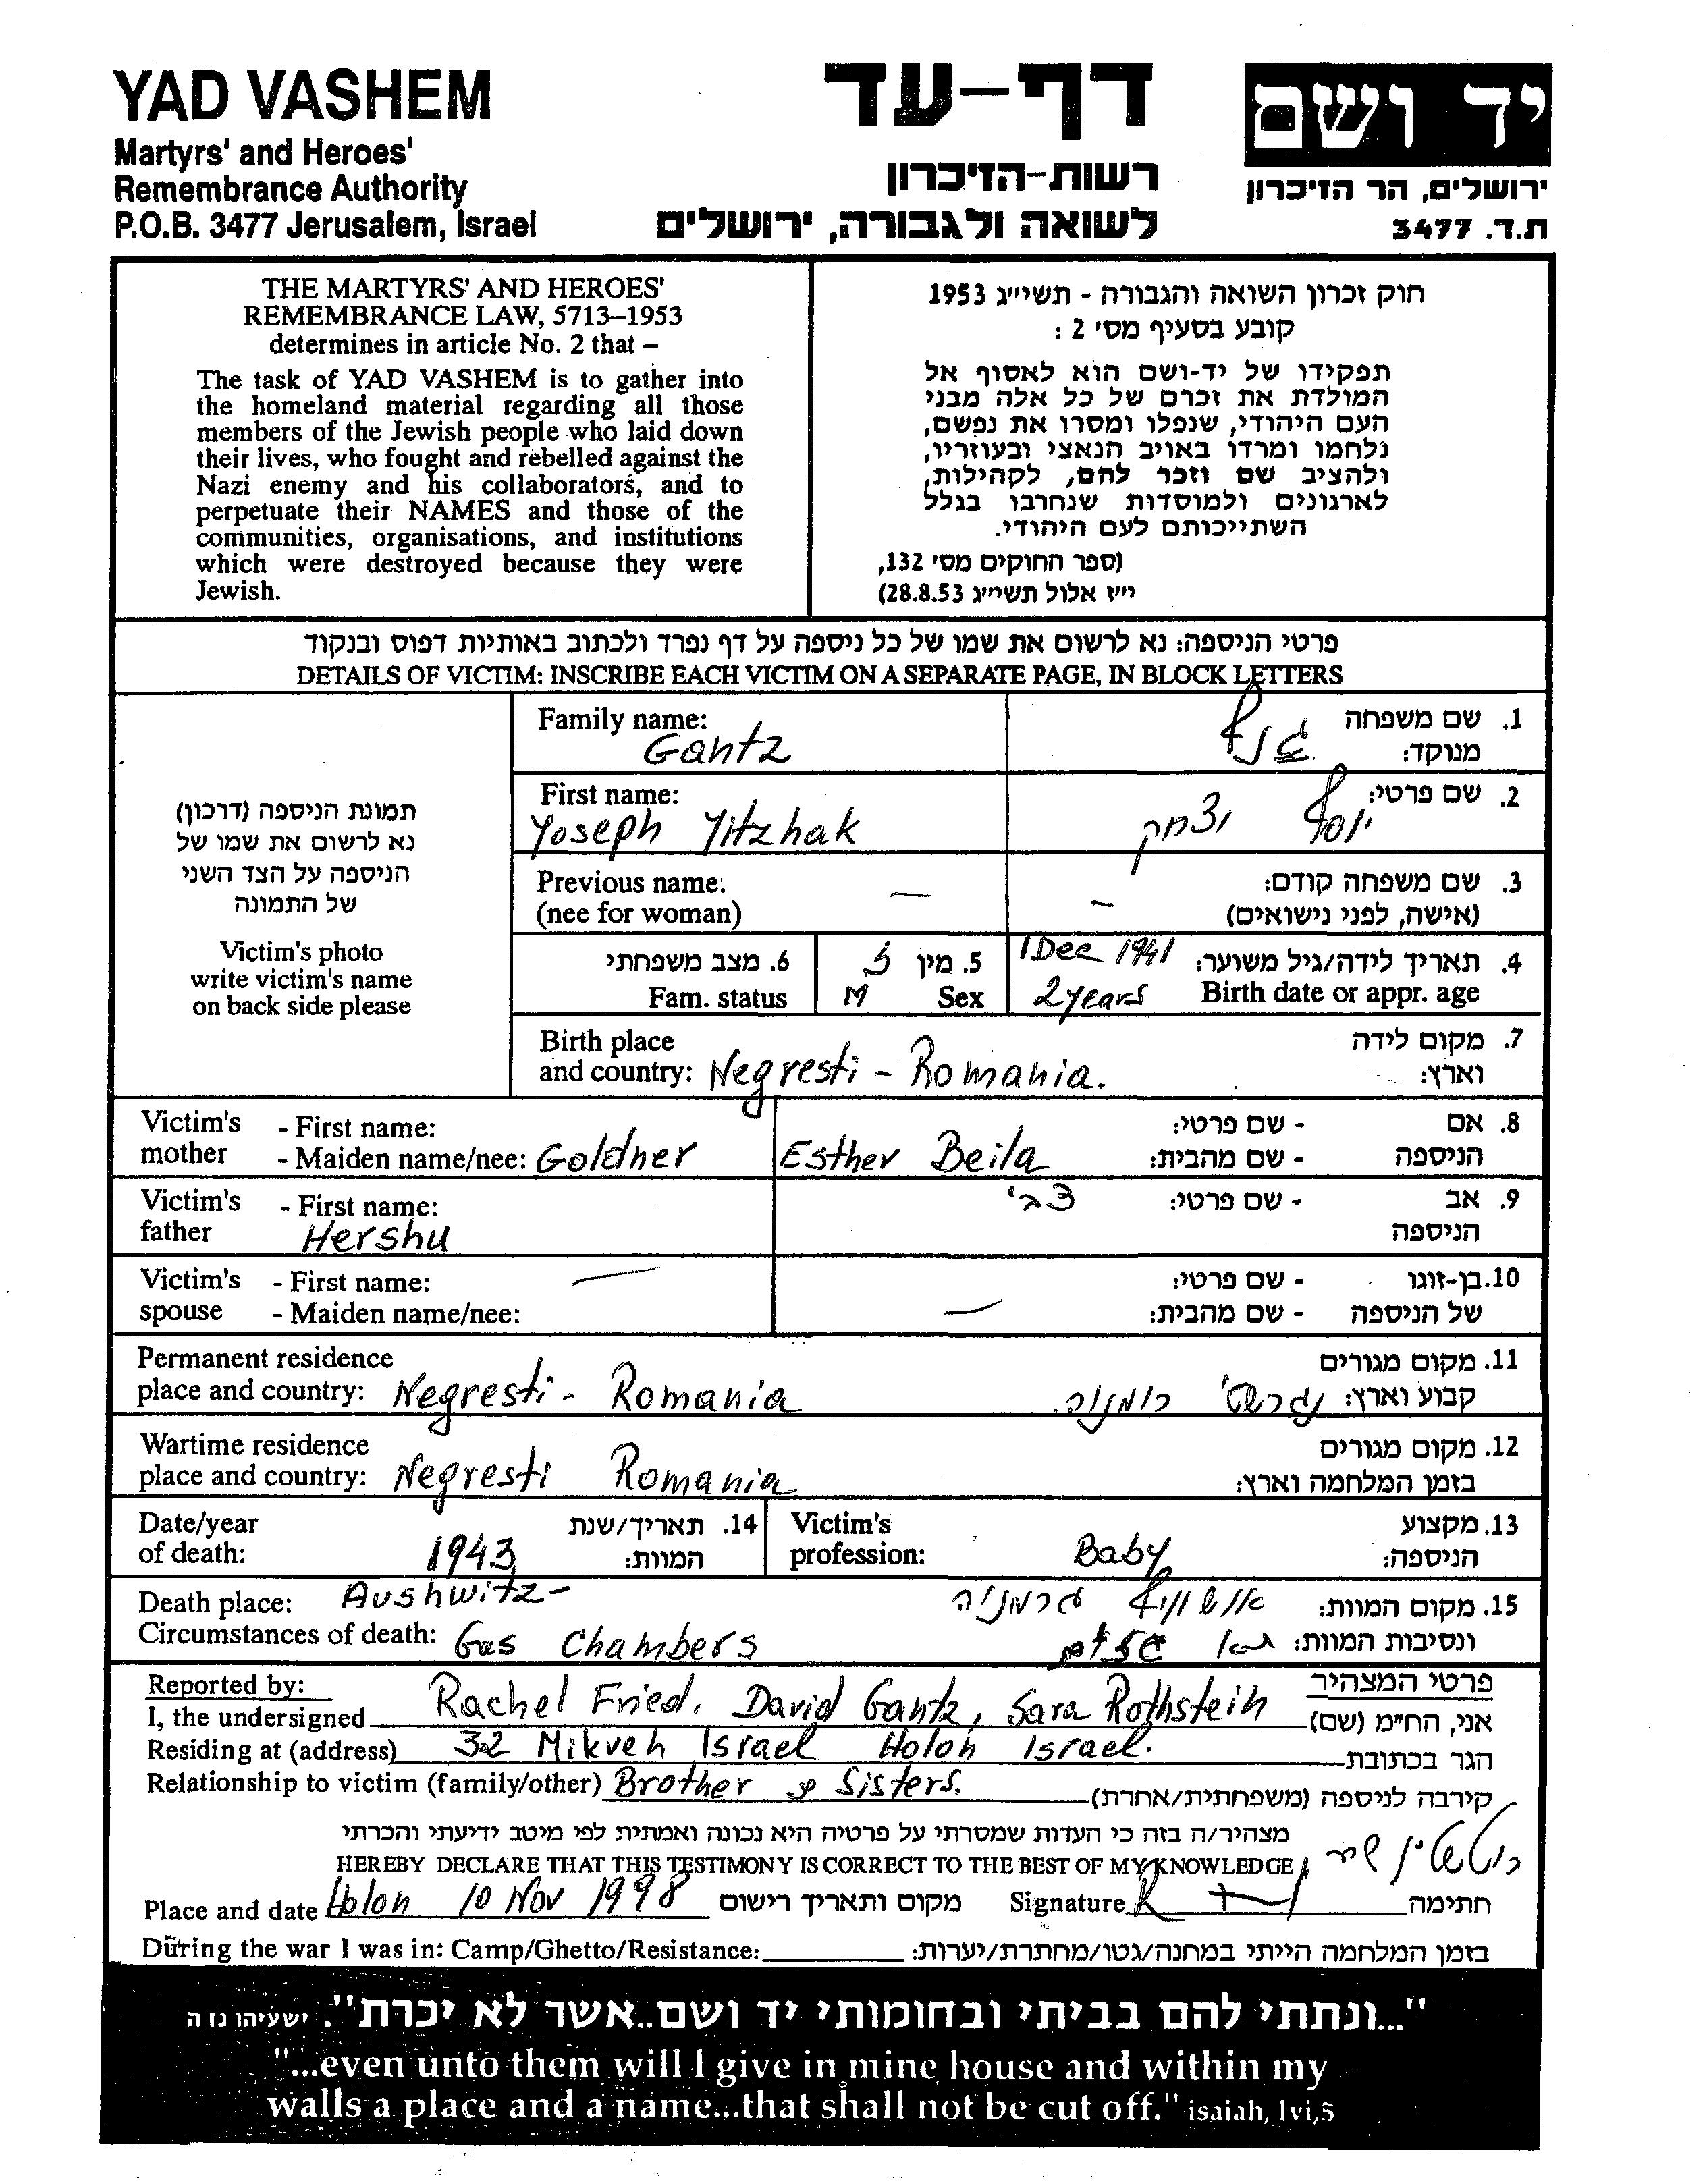 YAD VASHEM
Martyrs' and Heroes'
Remembrance Authority
P.O.B. 3477 Jerusalem, Israel
דף-עד
רשות-הזיכרון
לשואה ולגבורה, ירושלים
יד ושם
ירושלים, הר הזיכרון
ת.ד. 3477
THE MARTYRS' AND HEROES'
REMEMBRANCE LAW, 5713–1953
determines in article No. 2 that –
The task of YAD VASHEM is to gather into
the homeland material regarding all those
members of the Jewish people who laid down
their lives, who fought and rebelled against the
Nazi enemy and his collaborators, and to
perpetuate their NAMES and those of the
communities, organisations, and institutions
which were destroyed because they were
Jewish.
חוק זכרון השואה והגבורה - תשי״ג 1953
קובע בסעיף מס׳ 2 :
תפקידו של יד-ושם הוא לאסוף אל
המולדת את זכרם של כל אלה מבני
העם היהודי, שנפלו ומסרו את נפשם,
נלחמו ומרדו באויב הנאצי ובעוזריו,
ולהציב שם וזכר להם, לקהילות,
לארגונים ולמוסדות שנחרבו בגלל
השתייכותם לעם היהודי.
(ספר החוקים מס׳ 132,
י״ז אלול תשי״ג 28.8.53)
פרטי הניספה: נא לרשום את שמו של כל ניספה על דף נפרד ולכתוב באותיות דפוס ובנקוד
DETAILS OF VICTIM: INSCRIBE EACH VICTIM ON A SEPARATE PAGE, IN BLOCK LETTERS
תמונת הניספה (דרכון)
נא לרשום את שמו של
הניספה על הצד השני
של התמונה
Victim's photo
write victim's name
on back side please
Family name: 1. שם משפחה
Gantz גנץ מנוקד:
First name: 2. שם פרטי:
Yoseph Yitzhak יוסף יצחק
Previous name: — 3. שם משפחה קודם:
(nee for woman) – (אישה, לפני נישואים)
6. מצב משפחתי 5. מין ז 1 Dec 1941 4. תאריך לידה/גיל משוער:
Fam. status M Sex 2 years Birth date or appr. age
Birth place 7. מקום לידה
and country: Negresti - Romania. וארץ:
Victim's - First name: - שם פרטי: 8. אם
mother - Maiden name/nee: Goldner Esther Beila - שם מהבית: הניספה
Victim's - First name: צבי - שם פרטי: 9. אב
father Hershu הניספה
Victim's - First name: — - שם פרטי: 10. בן-זוגו
spouse - Maiden name/nee: — - שם מהבית: של הניספה
Permanent residence 11. מקום מגורים
place and country: Negresti - Romania קבוע וארץ: נגרשטי רומניה.
Wartime residence 12. מקום מגורים
place and country: Negresti Romania בזמן המלחמה וארץ:
Date/year 14. תאריך/שנת Victim's 13. מקצוע
of death: 1943 המוות: profession: Baby הניספה:
Death place: Aushwitz - 15. מקום המוות: אושוויץ גרמניה
Circumstances of death: Gas Chambers ונסיבות המוות:
Reported by: פרטי המצהיר
I, the undersigned Rachel Fried. David Gantz, Sara Rothstein אני, החי״מ (שם)
Residing at (address) 32 Mikveh Israel Holon Israel. הגר בכתובת
Relationship to victim (family/other) Brother & Sisters. קירבה לניספה (משפחתית/אחרת)
מצהיר/ה בזה כי העדות שמסרתי על פרטיה היא נכונה ואמתית לפי מיטב ידיעתי והכרתי
HEREBY DECLARE THAT THIS TESTIMONY IS CORRECT TO THE BEST OF MY KNOWLEDGE
Place and date Holon 10 Nov 1998 מקום ותאריך רישום Signature חתימה
During the war I was in: Camp/Ghetto/Resistance: בזמן המלחמה הייתי במחנה/גטו/מחתרת/יערות:
"...ונתתי להם בביתי ובחומותי יד ושם..אשר לא יכרת". ישעיהו נו ה
"...even unto them will I give in mine house and within my
walls a place and a name...that shall not be cut off." isaiah, lvi,5